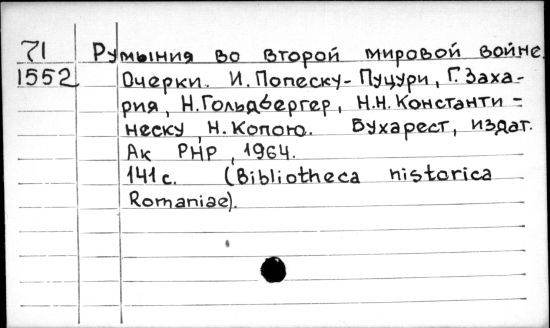 71 Румыния во второй мировой войне.
1552 Очерки. И. Попеску-Пуцури, Г. Заха-
рия, Н. Гольдбергер, Н.Н. Константи=
неску, Н. Копою. Бухарест, издат.
Ак РНР, 1964.
141 с. (Bibliotheca historica
Romaniae).